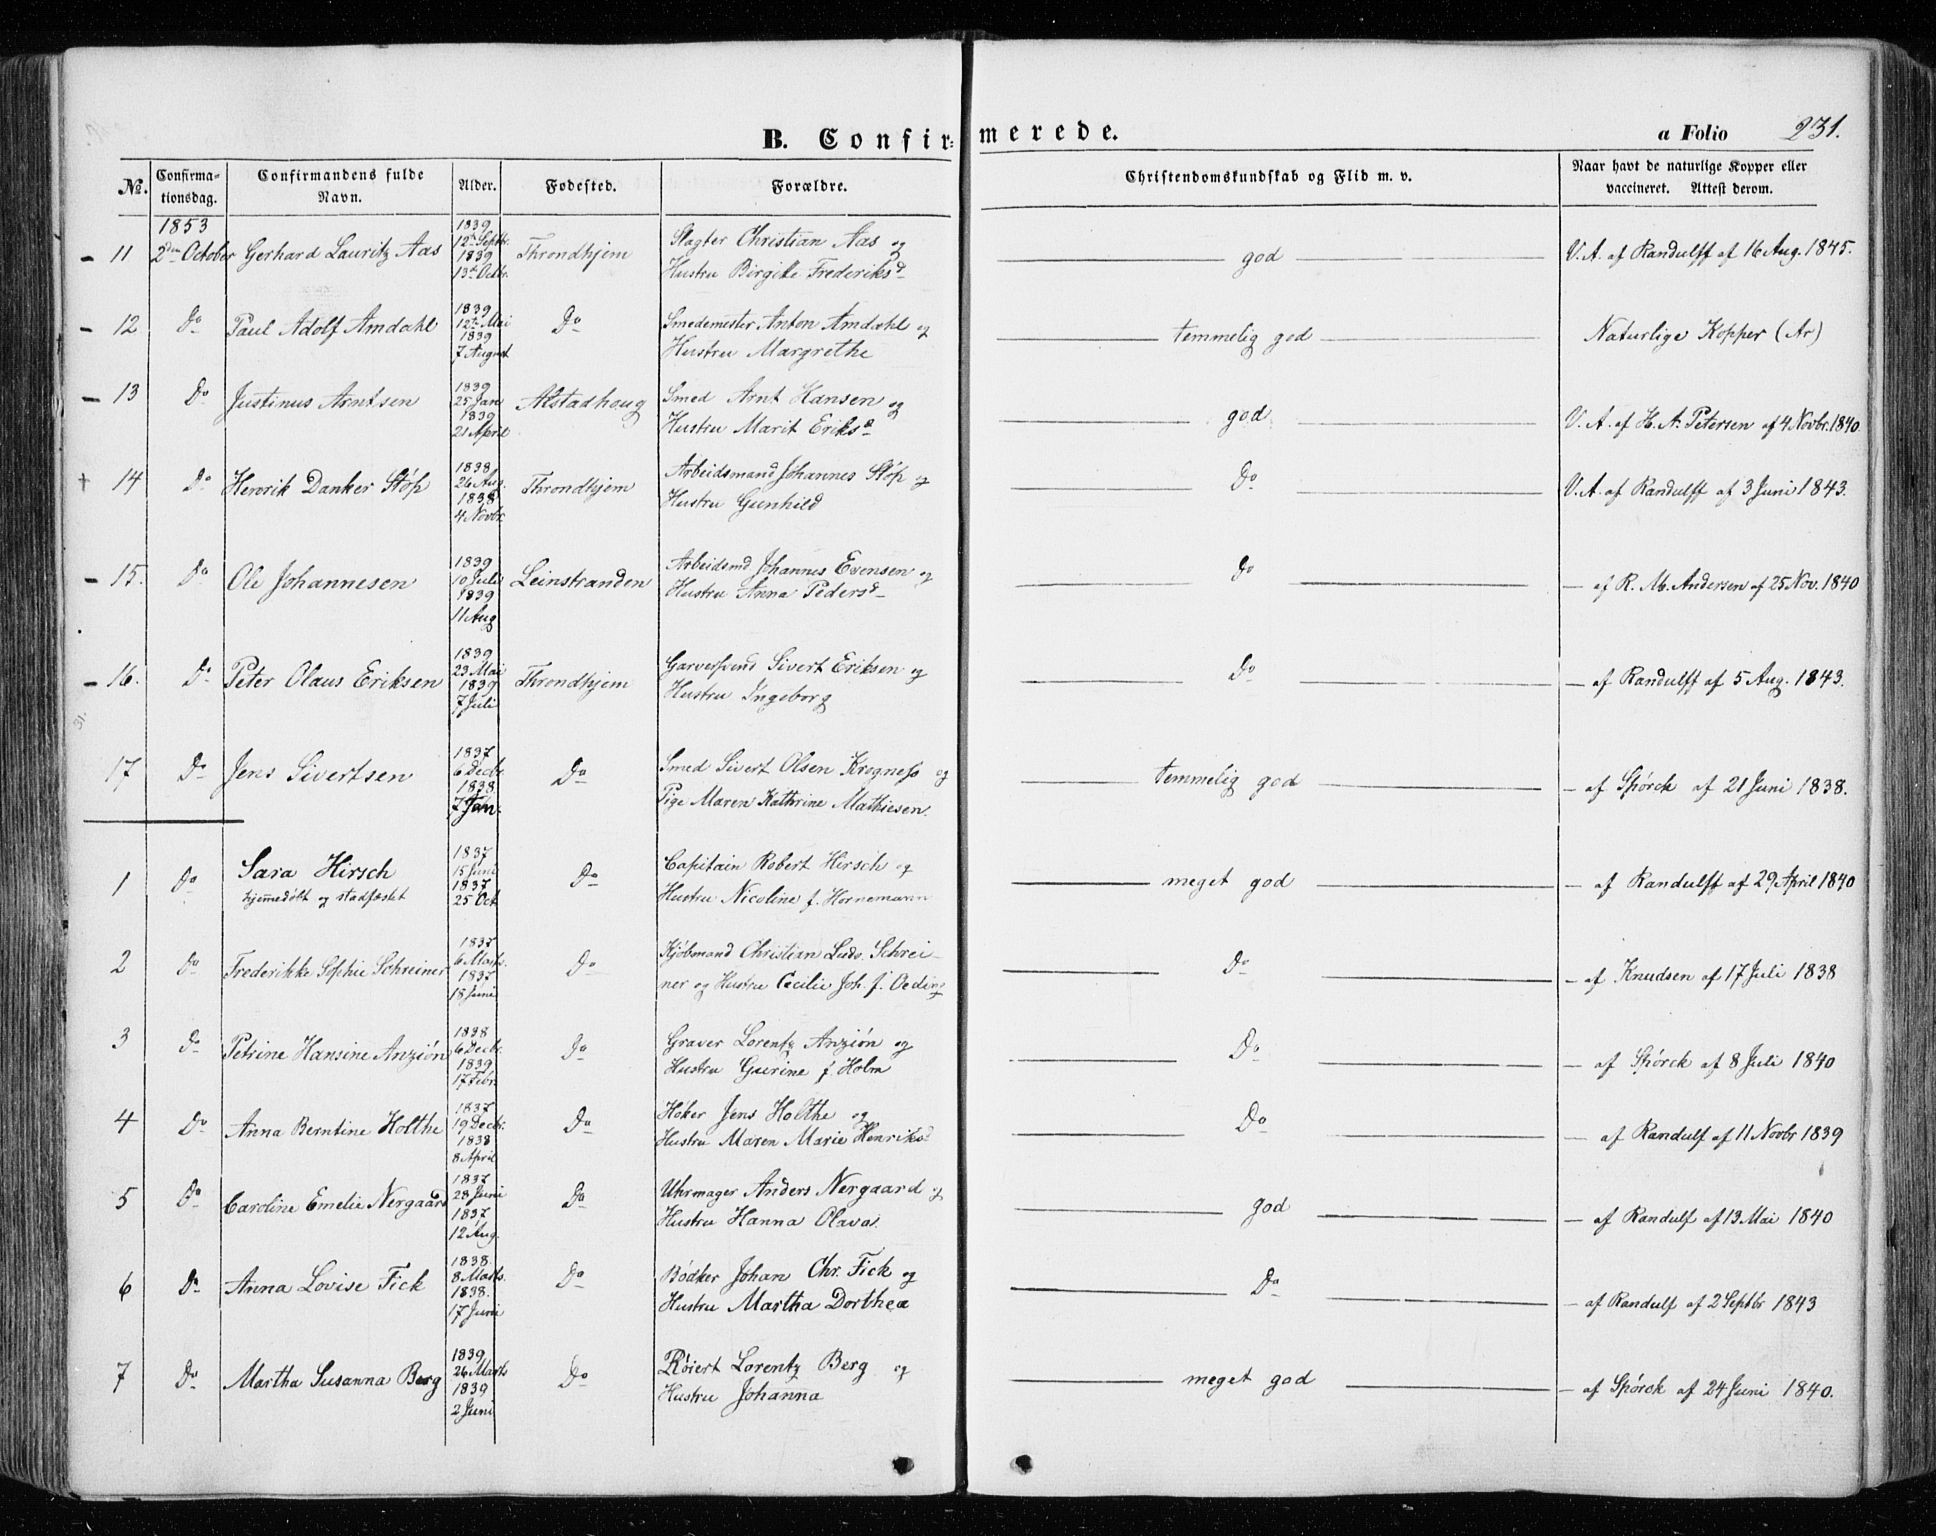 B. Confir- merede.
a Folio 231.
No. Confirma- tionsdag. Confirmandens fulde Navn. Alder. Fødested. Forældre. Christendomskundskab og Flid m. v. Naar havt de naturlige Kopper eller vaccineret. Attest derom.
1853
- 11 2den October Gerhard Lauritz Aas 1839 12te Septbr. 1839 13de Octbr. Throndhjem Slagter Christian Aas og
Hustru Birgitte Frederiksd god V. A. af Randulff af 16 Aug. 1845.
- 12 Do Paul Adolf Amdahl 1839 12te Mai 1839 7 August Do Smedemester Anton Amdahl og
Hustru Margrethe temmelig god Naturlige Kopper (Ar)
- 13 Do Justinus Arntsen 1839 25 Jan 1839 21 April Alstadhoug Smed Arnt Hansen og
Hustru Marit Eriksd god V. A. af H. A. Petersen af 4 Novbr. 1840
+ 14 Do Henrik Danker Støp 1838 26 Aug. 1838 4 Novbr. Throndhjem Arbeidsmand Johannes Støp og
Hustru Gunhild Do V. A. af Randulff af 3 Juni 1843.
- 15. Do Ole Johannesen 1839 10 Juli 1839 11 Aug Leinstranden Arbeidsmd Johannes Evensen og
Hustru Anna Pedersd Do — af R. M. Andersen af 25 Nov. 1840
- 16. Do Peter Olaus Eriksen 1839 23 Mai 1839 7 Juli Throndhjem Garversvend Sivert Eriksen og
Hustru Ingeborg Do — af Randulff af 5 Aug. 1843.
31.
17 Do Jens Sivertsen 1837 6 Decbr. 1838 7 Jan. Do Smed Sivert Olsen Krogness og
Pige Maren Kathrine Mathiesen. temmelig god — af Spørck af 21 Juni 1838.
1 Do Sara Hirsch
hjemmedøbt og stadfæstet 1837 15 Juni 1837 25 Oct Do Capitain Robert Hirsch og
Hustru Nicoline f. Hornemann meget god — af Randulff af 29 April 1840
2 Do Frederikke Sophie Schreiner 1837 6 Marts. 1837 18 Juni Do Kjøbmand Christian Ludv. Schrei-
ner og Hustru Cecilie Joh. f. Oeding Do — af Knudsen af 17 Juli 1838
3 Do Petrine Hansine Anziøn 1838 6 Decbr. 1839 17 Febr. Do Graver Lorentz Anziøn og
Hustru Gurine f. Holm Do — af Spørck af 8 Juli 1840
4 Do Anna Berntine Holthe 1837 19 Decbr. 1838 8 April Do Høker Jens Holthe og
Hustru Maren Marie Henriksd Do — af Randulf af 11 Novbr 1839
5 Do Caroline Emelie Nergaard 1837 28 Juni 1837 12 Aug. Do Uhrmager Anders Nergaard og
Hustru Hanna Olava. god — af Randulf af 13 Mai 1840
6 Do Anna Lovise Fick 1838. 8 Marts. 1838. 17 Juni Do Bødker Johan Chr. Fick og
Hustru Martha Dorthea Do — af Randulf af 2 Septbr 1843
7 Do Martha Susanna Berg 1839 26 Marts 1839 2 Juni Do Røiert Lorentz Berg og
Hustru Johanna meget god — af Spørck af 24 Juni 1840.